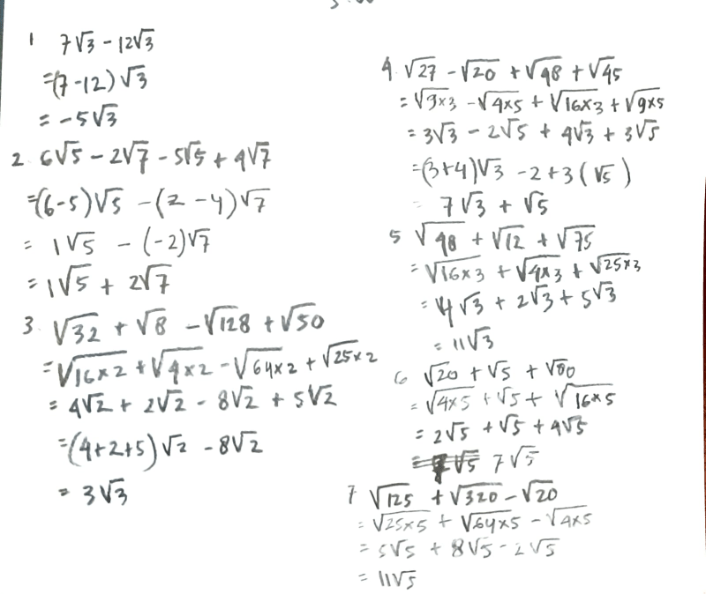 1 7√3 - 12√3
=(7-12)√3
= -5√3
2. 6√5 - 2√7 - 5√5 + 4√7
=(6-5)√5 -(2-4)√7
= 1√5 - (-2)√7
= 1√5 + 2√7
3. √32 + √8 - √128 + √50
=√16×2 + √4×2 - √64×2 + √25×2
= 4√2 + 2√2 - 8√2 + 5√2
=(4+2+5)√2 - 8√2
= 3√3
4. √27 - √20 + √48 + √45
= √9×3 - √4×5 + √16×3 + √9×5
= 3√3 - 2√5 + 4√3 + 3√5
=(3+4)√3 -2+3(√5)
7√3 + √5
5 √48 + √12 + √75
= √16×3 + √4×3 + √25×3
= 4√3 + 2√3 + 5√3
= 11√3
6 √20 + √5 + √80
= √4×5 + √5 + √16×5
= 2√5 + √5 + 4√5
= 7√5
7 √125 + √320 - √20
= √25×5 + √64×5 - √4×5
= 5√5 + 8√5 - 2√5
= 11√5